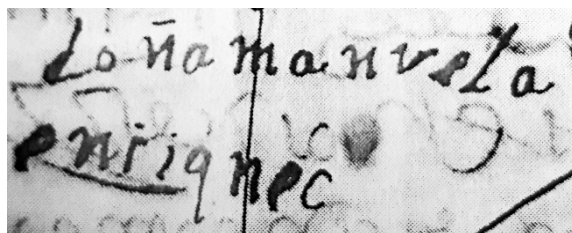 doña manvela
enriqnec